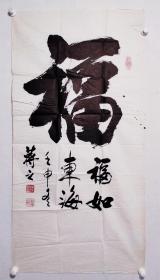 福
福如
東海
壬申冬
蒋文